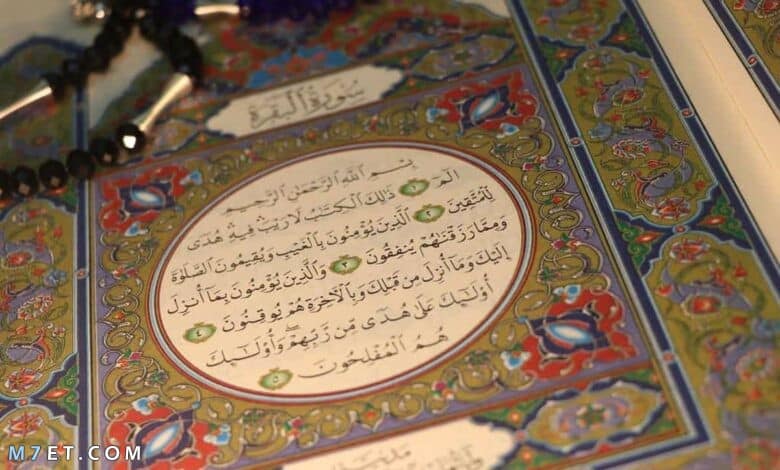 سُورَةُ الْبَقَرَةِ
بِسْمِ اللَّهِ الرَّحْمَٰنِ الرَّحِيمِ
الٓمٓ ١ ذَٰلِكَ الْكِتَٰبُ لَا رَيْبَ فِيهِ هُدًى
لِّلْمُتَّقِينَ ٢ الَّذِينَ يُؤْمِنُونَ بِالْغَيْبِ وَيُقِيمُونَ الصَّلَوٰةَ
وَمِمَّا رَزَقْنَٰهُمْ يُنفِقُونَ ٣ وَالَّذِينَ يُؤْمِنُونَ بِمَآ أُنزِلَ
إِلَيْكَ وَمَآ أُنزِلَ مِن قَبْلِكَ وَبِالْآخِرَةِ هُمْ يُوقِنُونَ ٤
أُو۟لَٰٓئِكَ عَلَىٰ هُدًى مِّن رَّبِّهِمْ ۖ وَأُو۟لَٰٓئِكَ
هُمُ الْمُفْلِحُونَ ٥
M7ET.COM